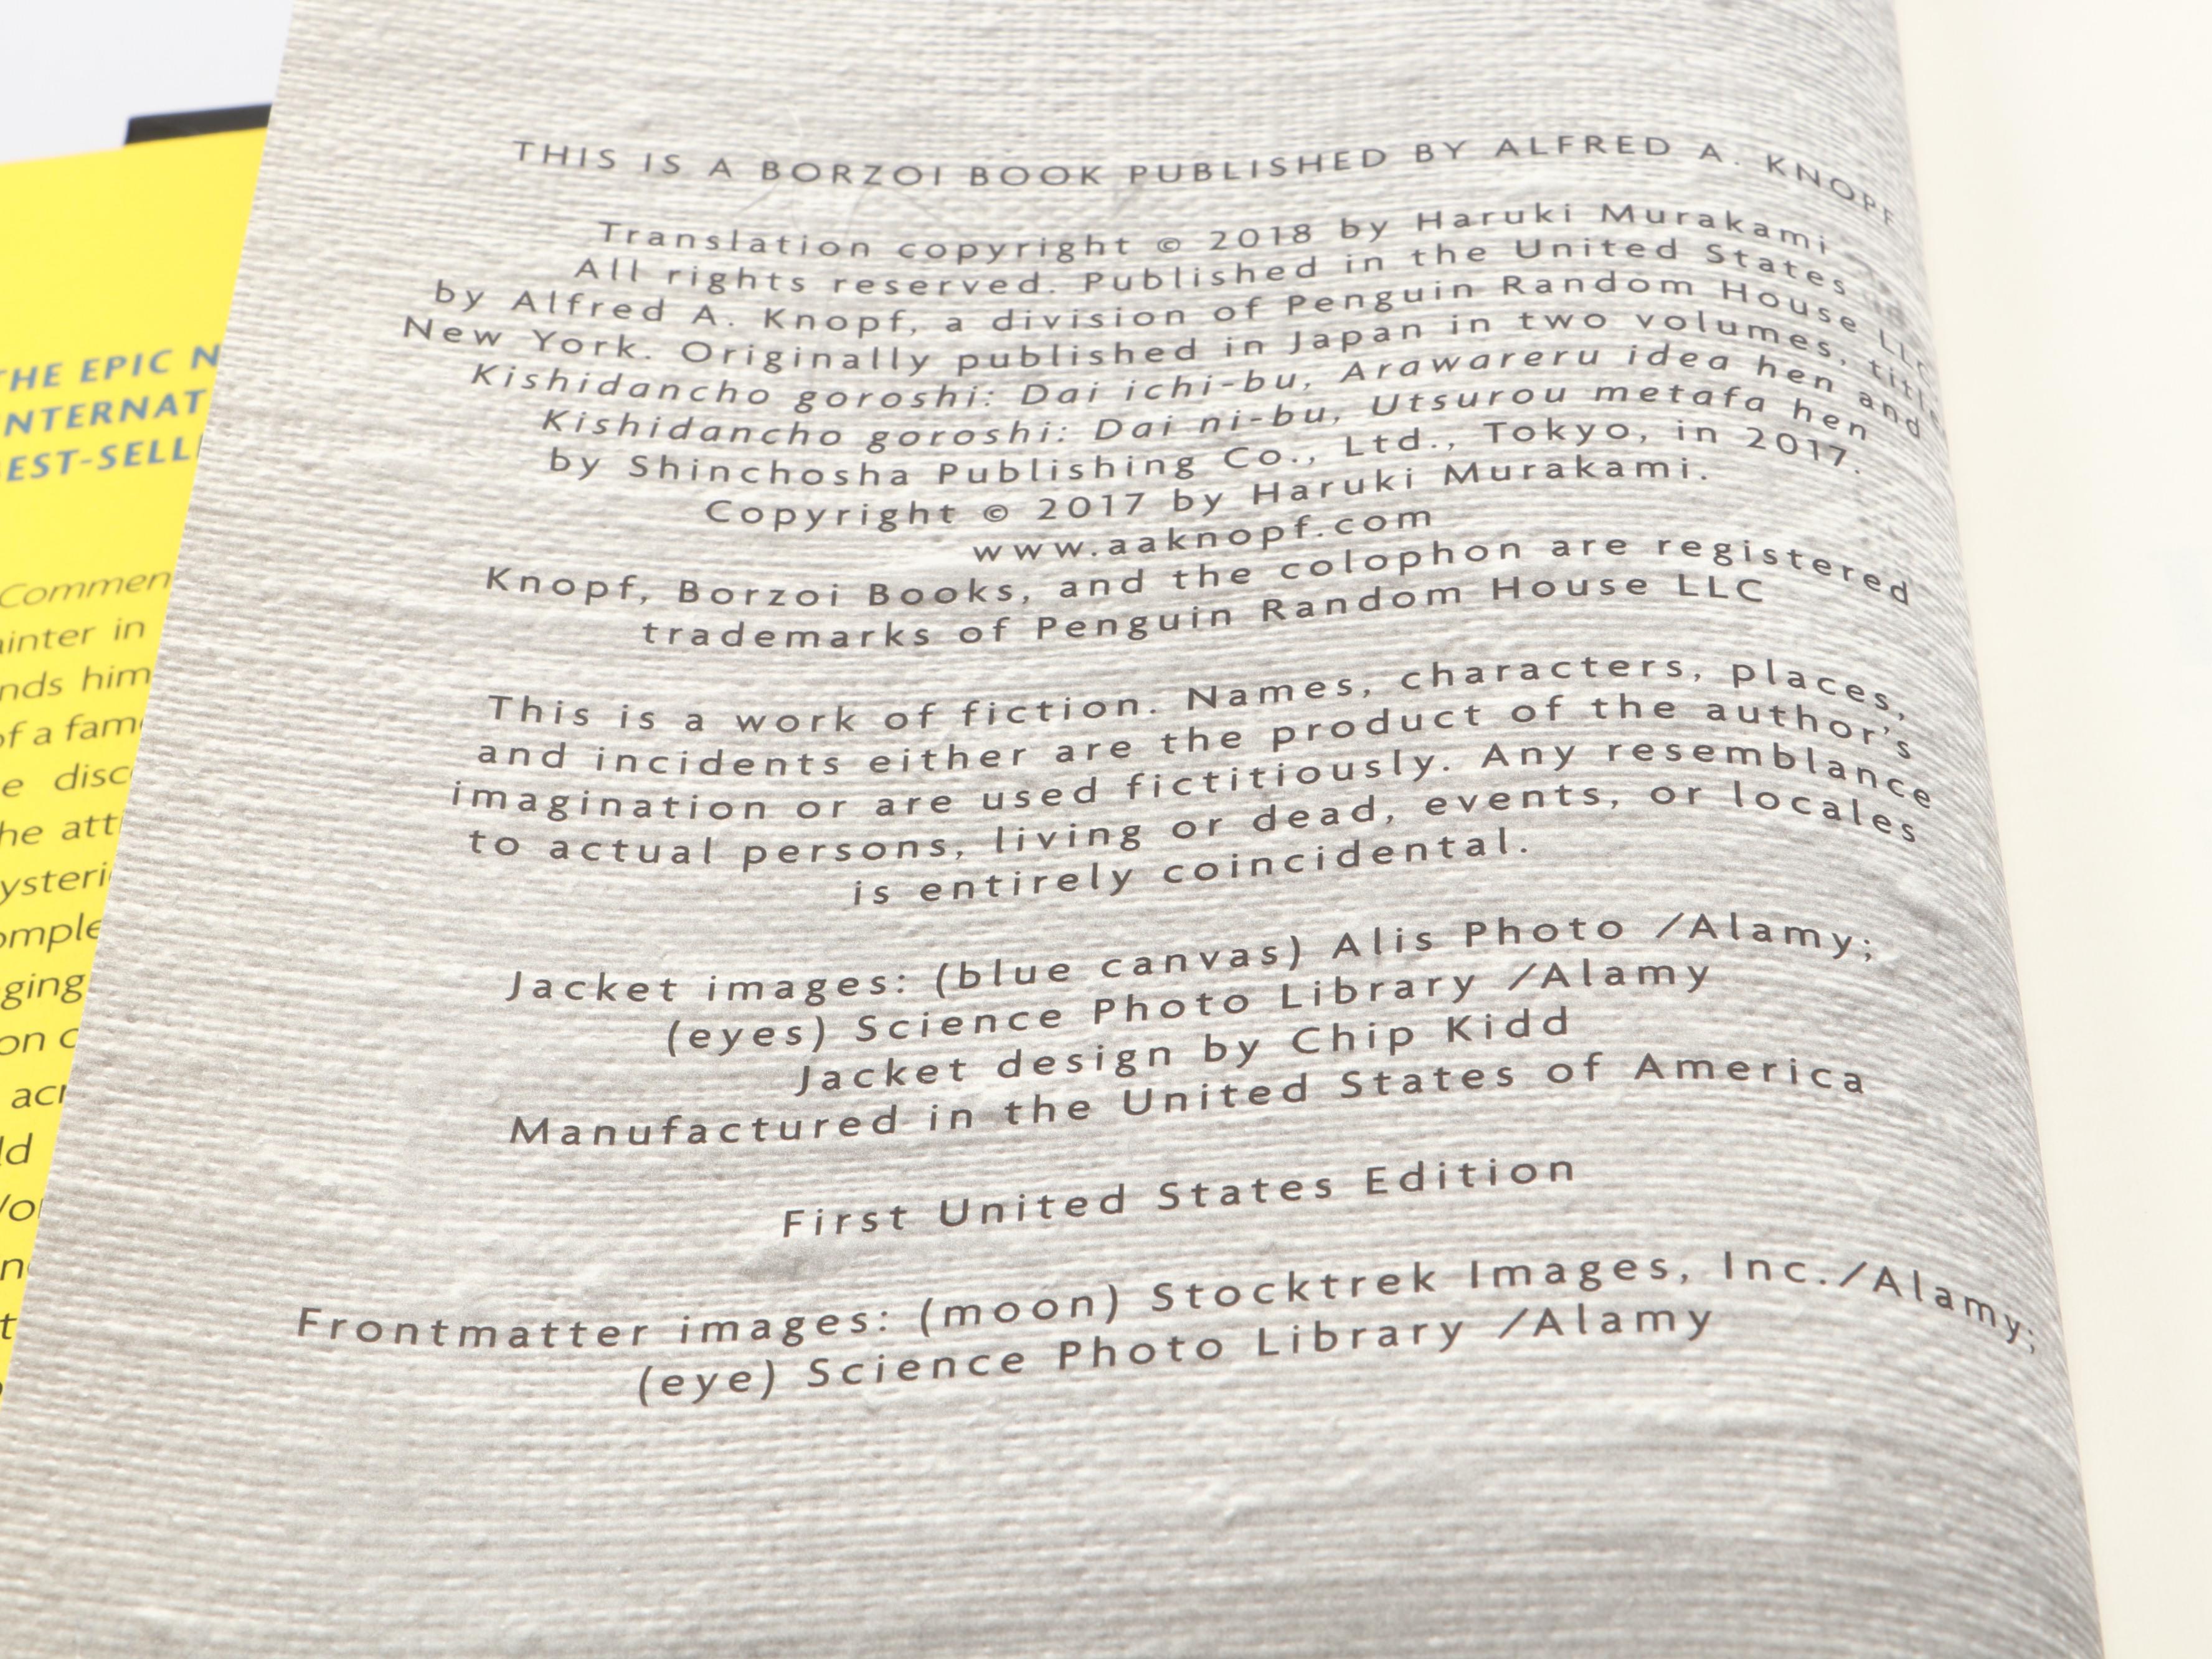 THE EPIC N
INTERNAT
EST-SELL
Commen
ainter in
nds him
of a fam
e disc
he att
ysteri
omple
ging
on c
acr
ld
t
THIS IS A BORZOI BOOK PUBLISHED BY ALFRED A. KNOPF
Translation copyright © 2018 by Haruki Murakami
All rights reserved. Published in the United States
by Alfred A. Knopf, a division of Penguin Random House LLC
New York. Originally published in Japan in two volumes, title
Kishidancho goroshi: Dai ichi-bu, Arawareru idea hen and
Kishidancho goroshi: Dai ni-bu, Utsurou metafa hen
by Shinchosha Publishing Co., Ltd., Tokyo, in 2017.
Copyright © 2017 by Haruki Murakami.
www.aaknopf.com
Knopf, Borzoi Books, and the colophon are registered
trademarks of Penguin Random House LLC
This is a work of fiction. Names, characters, places,
and incidents either are the product of the author's
imagination or are used fictitiously. Any resemblance
to actual persons, living or dead, events, or locales
is entirely coincidental.
Jacket images: (blue canvas) Alis Photo /Alamy;
(eyes) Science Photo Library /Alamy
Jacket design by Chip Kidd
Manufactured in the United States of America
First United States Edition
Frontmatter images: (moon) Stocktrek Images, Inc./Alamy;
(eye) Science Photo Library /Alamy